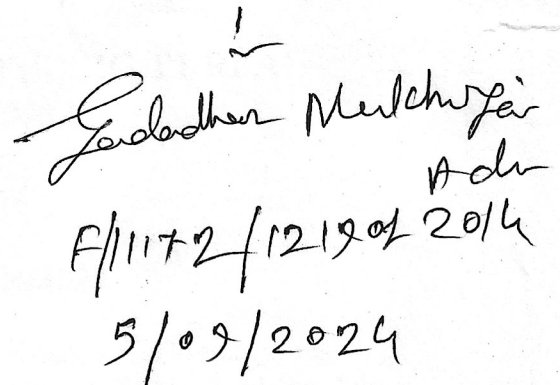 Gadadhar Mukherjee
Adv
F/11172/1219 of 2014
5/09/2024